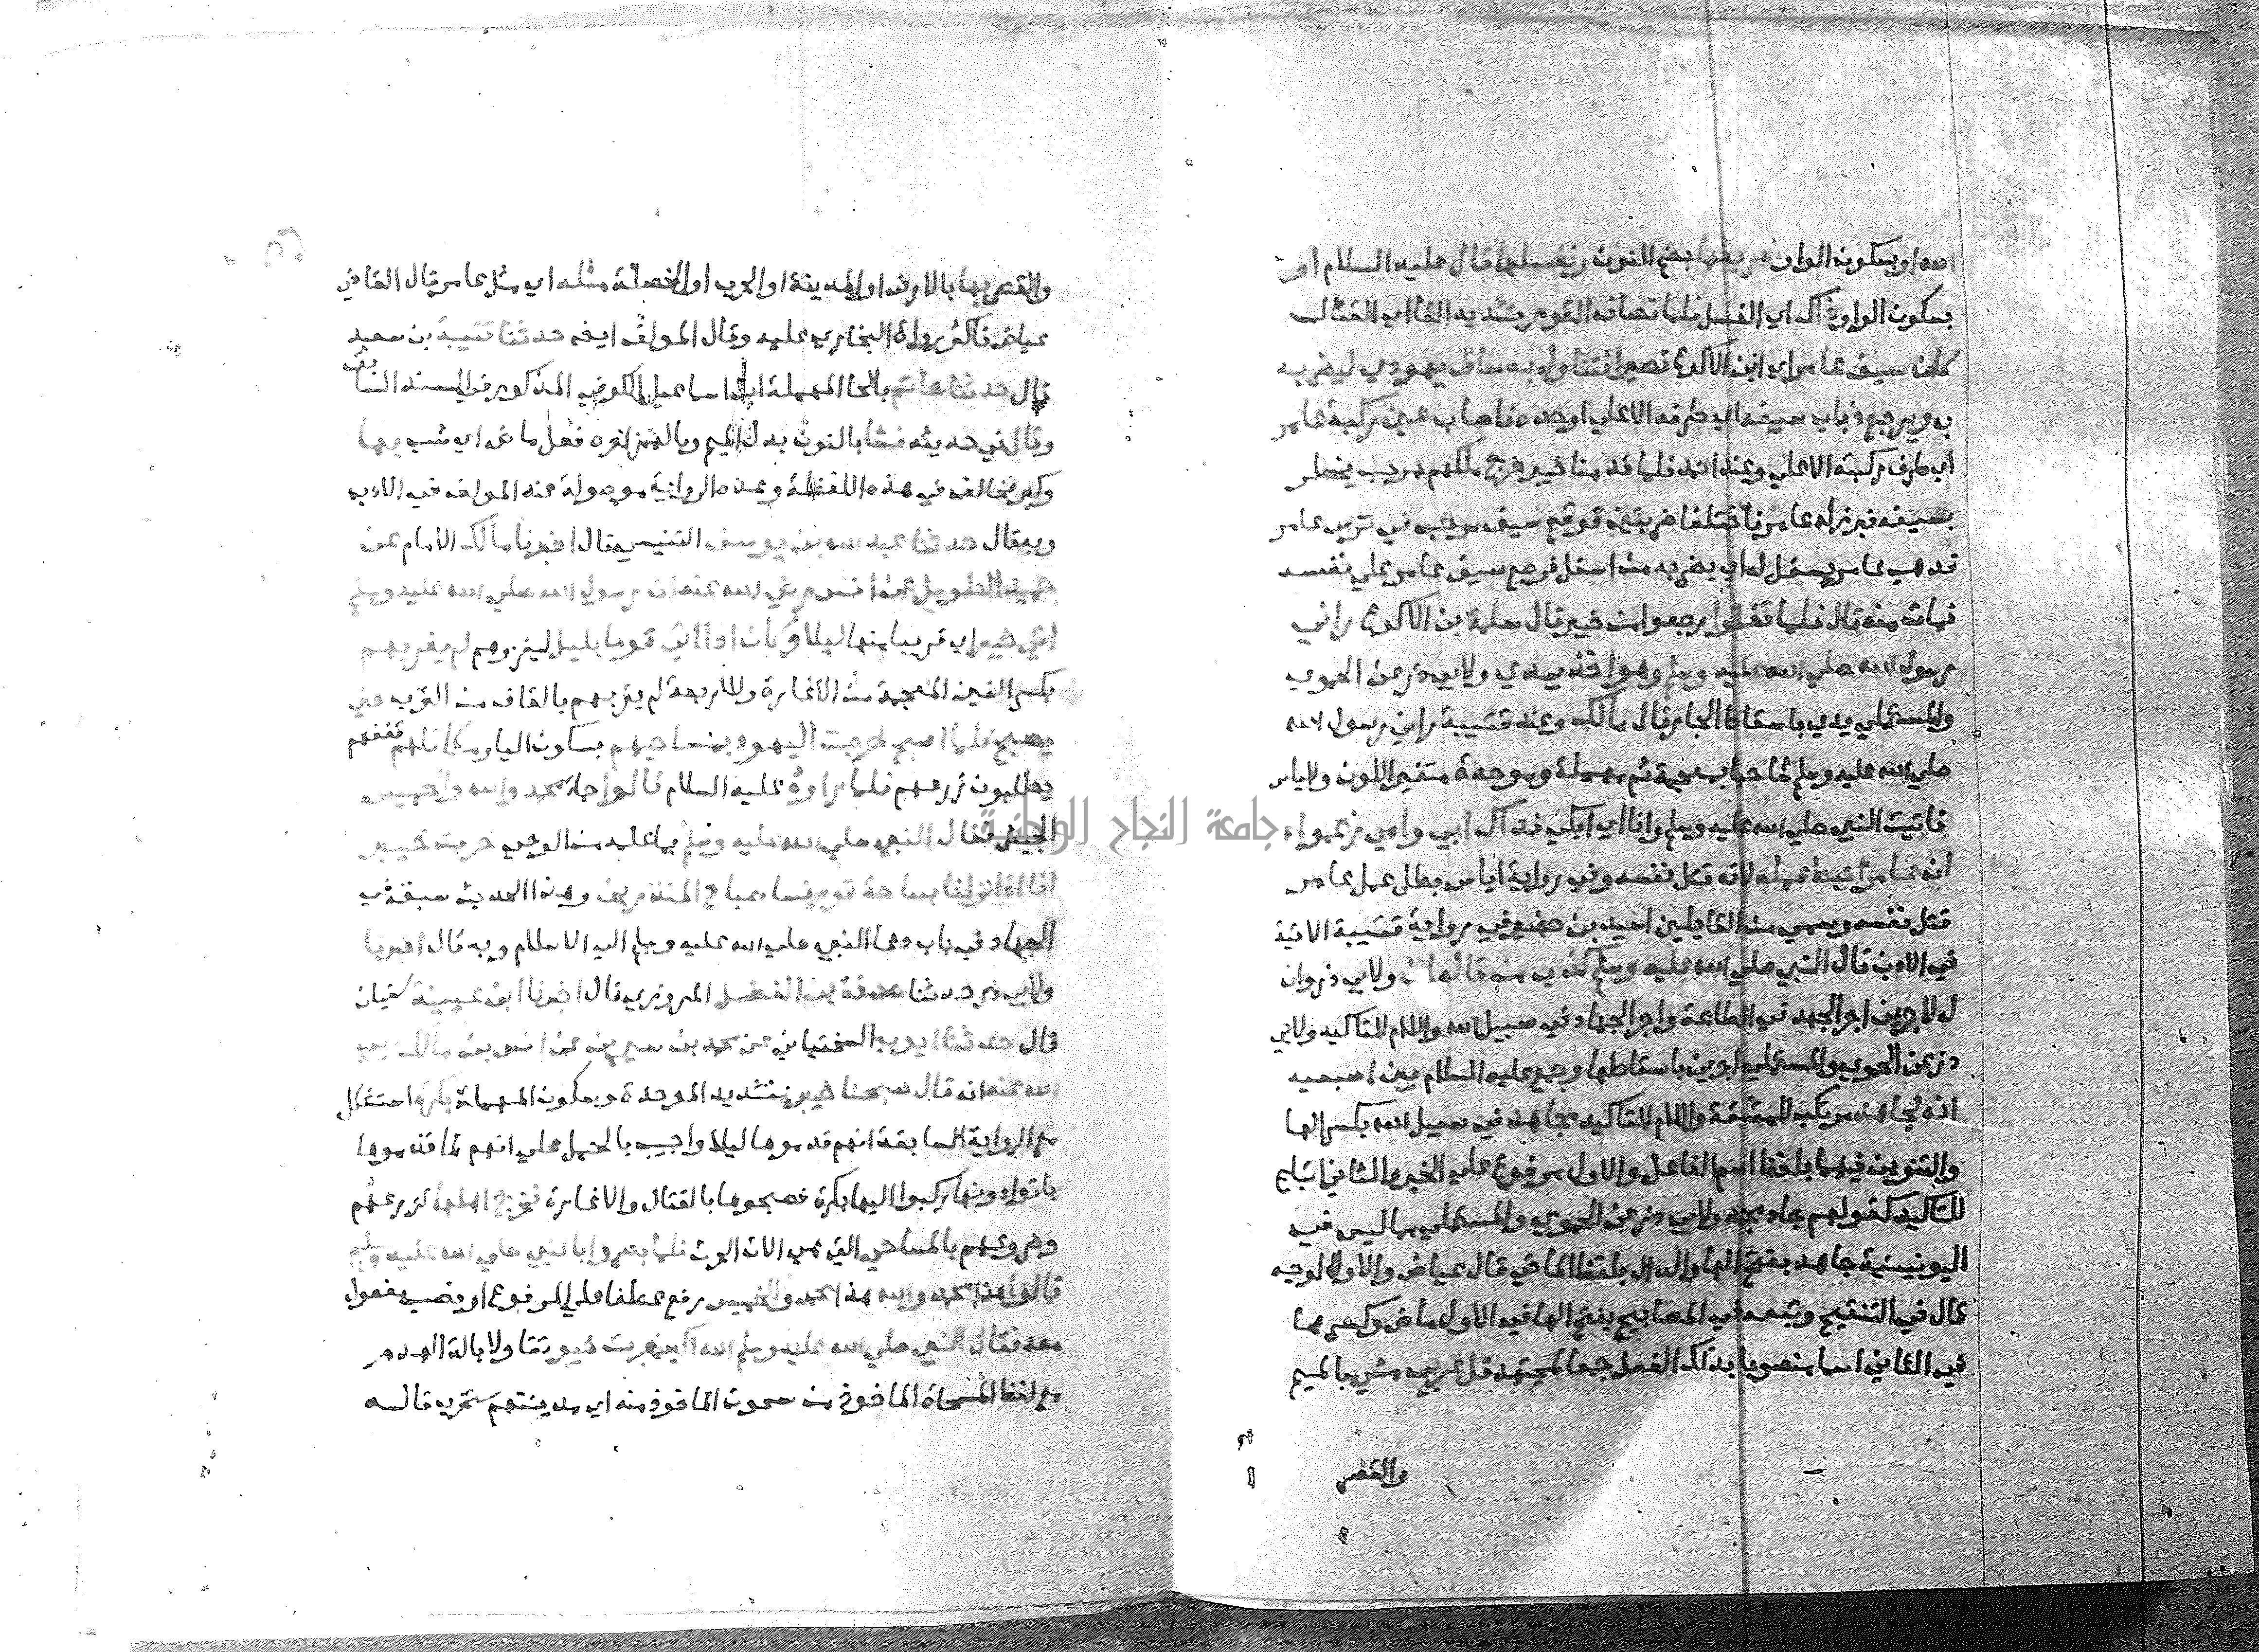 الله او بسكون الواو نهريقها بضم النون ونغسلها قال عليه السلام او
بسكون الواو ذاك اي الغسل فلما تصاف القوم بتشديد الفا اي للقتال
كان سيف عامر اي ابن الاكوع قصيرا فتناول به ساق يهودي ليضربه
به ويرجع ذباب سيفه اي طرفه الاعلي او حده فاصاب عين ركبة عامر
اي طرف ركبته الاعلي وعند احمد فلما قدمنا خيبر خرج ملكهم مرحب يخطر
بسيفه فبرز له عامر فاختلفا ضربتين فوقع سيف مرحب في ترس عامر
فذهب عامر يسفل له اي يضربه من اسفل فرجع سيف عامر علي نفسه
فمات منه قال فلما قفلوا رجعوا من خيبر قال سلمة بن الاكوع راني
رسول الله صلي الله عليه وسلم وهو اخذ بيدي ولابي ذر عن الحموي
والمستملي يدي باسقاط الجار قال مالك وعند قتيبة راني رسول الله
صلي الله عليه وسلم شاحبا بمعجمة ثم مهملة وموحدة متغير اللون ولاياس
فاتيت النبي صلي الله عليه وسلم وانا ابكي فداك ابي وامي زعموا
ان عامرا حبط عمله لانه قتل نفسه وفي رواية اياس بطل عمل عامر
قتل نفسه وسمي من القايلين اسيد بن حضير في رواية قتيبة الاتية
في الادب قال النبي صلي الله عليه وسلم كذب من قاله ان ولابي ذر وان
له لاجرين اجر الجهد في الطاعة واجر الجهاد في سبيل الله واللام للتاكيد ولابي
ذر عن الحموي والمستملي اجرين باسقاطها وجمع عليه السلام بين اصبعيه
انه لجاهد مرتكب للمشقة واللام للتاكيد مجاهد في سبيل الله بكسر الها
والتنوين فيهما بلفظ اسم الفاعل والاول مرفوع علي الخبر والثاني اتباع
للتاكيد كقولهم جاد مجد ولابي ذر عن الحموي والمستملي مما ليس في
اليونينية جاهد بفتح الها والدال بلفظ الماضي قال عياض والاول الوجه
قال في التنقيح وتبعه في المصابيح بفتح الها في الاول ماض وكسرها
في الثاني اسما منصوبا بذلك الفعل جمعا لمجهد قل عربي مشي بالميم
والقصر
والقصر بها بالارض او المدينة او الحرب او الخصلة مثله اي مثل عامر قال القاضي
عياض فاكثر رواة البخاري عليه وقال المولف ايضا حدثنا قتيبة بن سعيد
قال حدثنا حاتم بالحا المهملة ابن اسماعيل الكوفي المذكور في السند السابق
وقال في حديثه نشا بالنون بدل الميم وبالهمز اخره فعل ماض اي شب بها
وكبر فخالف في هذه اللفظة وهذه الرواية موصولة عند المولف في الادب
وبه قال حدثنا عبد الله بن يوسف التنيسي قال اخبرنا مالك الامام عن
حميد الطويل عن انس رضي الله عنه ان رسول الله صلي الله عليه وسلم
اتي خيبر اي قريبا منها ليلا وكان اذا اتي قوما بليل ليغزوهم لم يغر بهم
بكسر الغين المعجمة من الاغارة وللاربعة لم يقربهم بالقاف من القرب حتي
يصبح فلما اصبح خرجت اليهود بمساحيهم بسكون اليا ومكاتلهم قففهم
يطلبون زرعهم فلما راوه عليه السلام قالوا جا محمد والله والخميس
الجيش فقال النبي صلي الله عليه وسلم بما علمه من الوحي خربت خيبر
انا اذا نزلنا بساحة قوم فسا صباح المنذرين وهذا الحديث سبق في
الجهاد في باب دعا النبي صلي الله عليه وسلم الي الاسلام وبه قال اخبرنا
ولابي ذر حدثنا صدقة بن الفضل المروزي قال اخبرنا ابن عيينة سفيان
قال حدثنا ايوب السختياني عن محمد بن سيرين عن انس بن مالك رضي
الله عنه انه قال صبحنا خيبر بتشديد الموحدة وسكون المهملة بكرة استشكل
مع الرواية السابقة انهم قدموها ليلا واجيب بالحمل علي انهم لما قدموها
باتوا دونها ركبوا اليها بكرة فصبحوها بالقتال والاغارة فخرج اهلها لزرعهم
وضروعهم بالمساحي التي هي الات الحرث فلما بصروا بالنبي صلي الله عليه وسلم
قالوا هذا محمد والله هذا محمد والخميس رفع عطفا علي المرفوع او نصب مفعول
معه فقال النبي صلي الله عليه وسلم الله اكبر خربت خيبر تفاولا بالة الهدم
مع لفظ المسحاة الماخوذ من سحوت الماخوذ منه اي مدينتهم ستخرب قاله